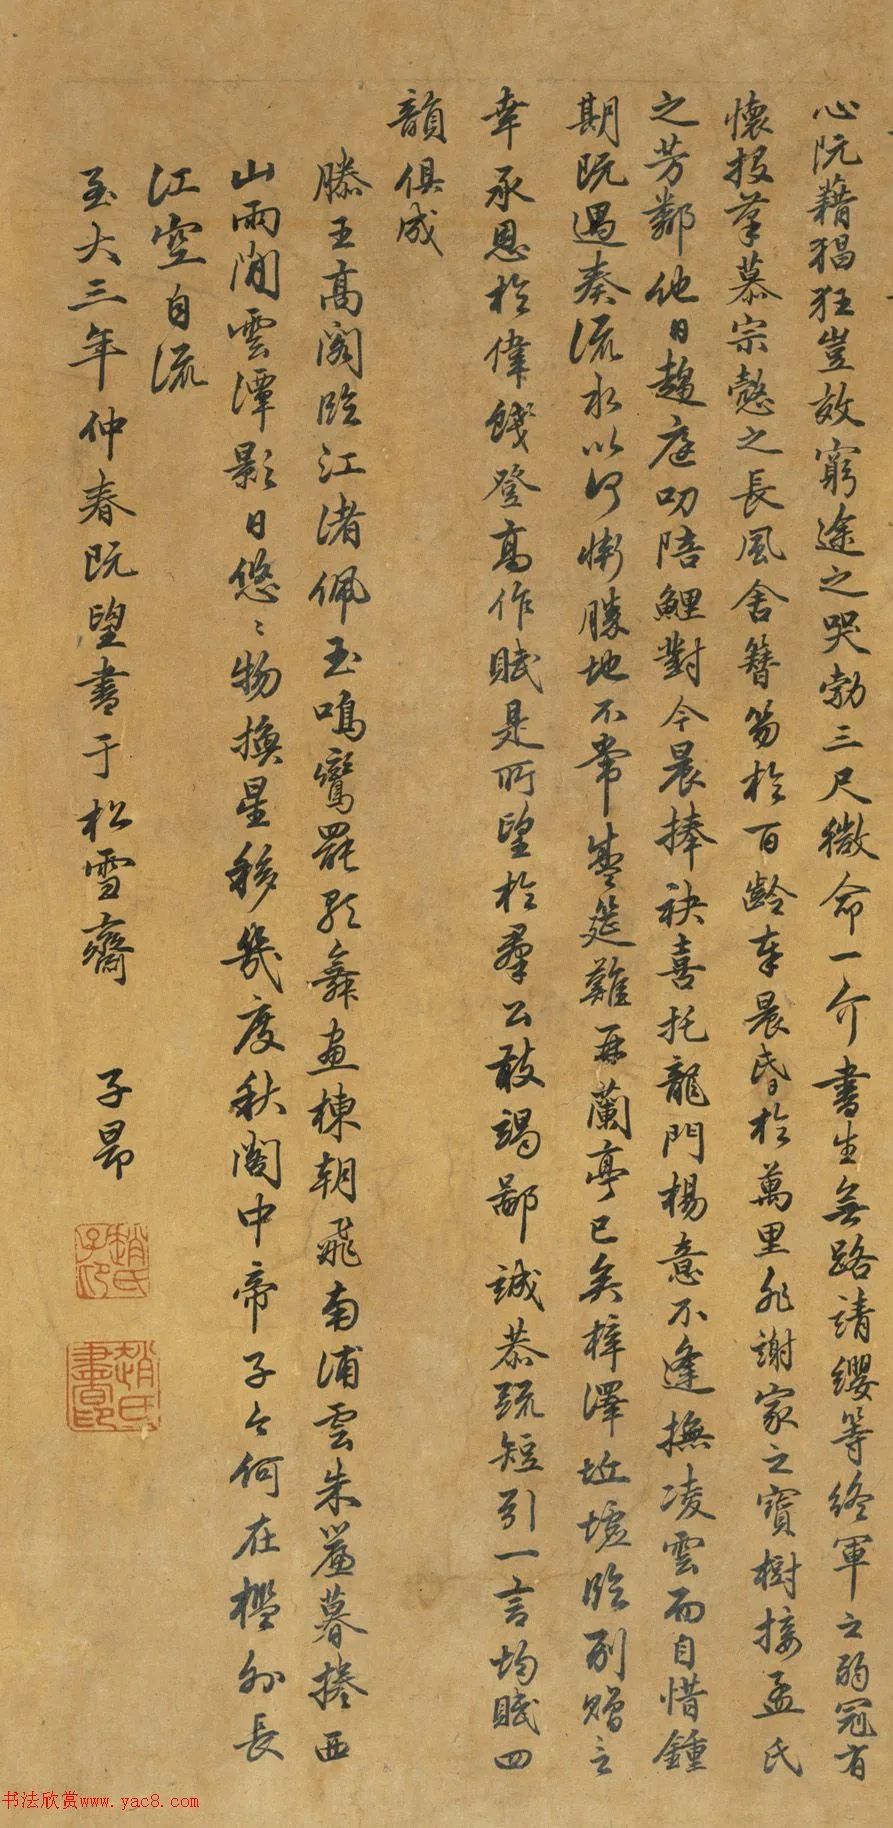 心阮藉猖狂豈效窮途之哭勃三尺微命一介書生無路請纓等終軍之弱冠有
懷投筆慕宗愨之長風舍簪笏於百齡奉晨昏於萬里非謝家之寶樹接孟氏
之芳鄰他日趨庭叨陪鯉對今晨捧袂喜托龍門楊意不逢撫凌雲而自惜鍾
期既遇奏流水以何慚勝地不常盛筵難再蘭亭已矣梓澤丘墟臨別贈言
幸承恩於偉餞登高作賦是所望於群公敢竭鄙誠恭疏短引一言均賦四
韻俱成
滕王高閣臨江渚佩玉鳴鸞罷歌舞畫棟朝飛南浦雲朱簾暮捲西
山雨閒雲潭影日悠〻物換星移幾度秋閣中帝子今何在檻外長
江空自流
至大三年仲春既望書于松雪齋 子昂
趙氏子印
趙氏書印
书法欣赏www.yac8.com